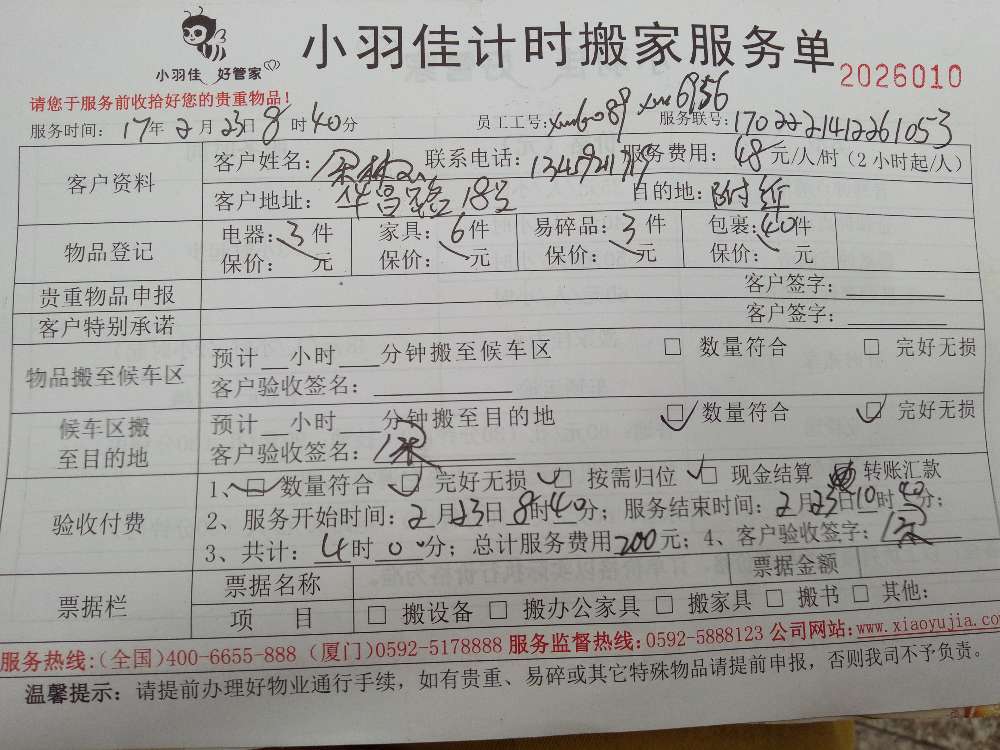 小羽佳 好管家
小羽佳计时搬家服务单
2026010
请您于服务前收拾好您的贵重物品！
服务时间：17年2月23日8时40分 员工工号：xm6089 xm6956 服务联号：1702221412261053
客户资料
客户姓名： 联系电话： 服务费用：48元/人/时（2小时起/人）
客户地址：华昌路18号 目的地：附近
物品登记
电器：3件 家具：6件 易碎品：3件 包裹：40件
保价： 元 保价： 元 保价： 元 保价： 元
贵重物品申报 客户签字：
客户特别承诺 客户签字：
物品搬至候车区
预计 小时 分钟搬至候车区 □ 数量符合 □ 完好无损
客户验收签名：
候车区搬至目的地
预计 小时 分钟搬至目的地 □ 数量符合 □ 完好无损
客户验收签名：
验收付费
1、□ 数量符合 □ 完好无损 □ 按需归位 □ 现金结算 转账汇款
2、服务开始时间：2月23日8时40分；服务结束时间：2月23日10时40分；
3、共计：4时0分；总计服务费用200元；4、客户验收签字：
票据栏
票据名称 票据金额
项 目 □ 搬设备 □ 搬办公家具 □ 搬家具 □ 搬书 □ 其他：
服务热线：（全国）400-6655-888（厦门）0592-5178888 服务监督热线：0592-5888123 公司网站：www.xiaoyujia.com
温馨提示：请提前办理好物业通行手续，如有贵重、易碎或其它特殊物品请提前申报，否则我司不予负责。